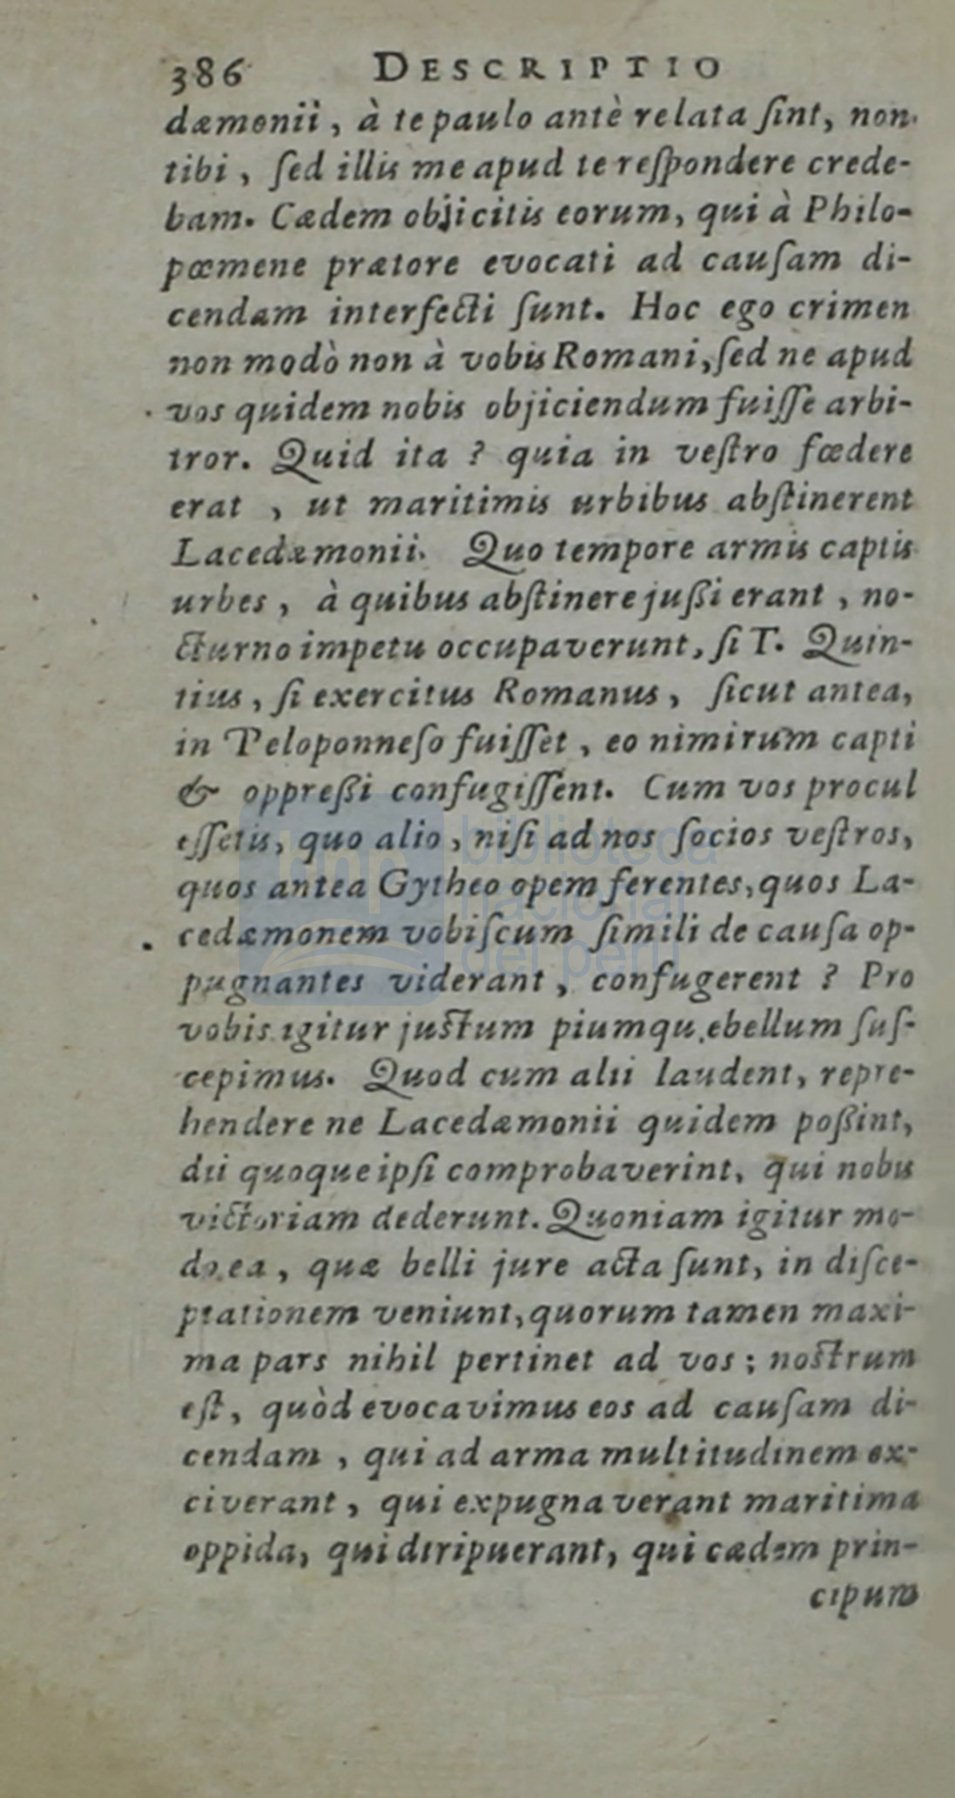 386 DESCRIPTIO
dæmonii, à te paulo antè relata ſint, non
tibi, ſed illis me apud te reſpondere crede-
bam. Cædem objicitis eorum, qui à Philo-
pœmene prætore evocati ad cauſam di-
cendam interfecti ſunt. Hoc ego crimen
non modò non à vobis Romani, ſed ne apud
vos quidem nobis objiciendum fuiſſe arbi-
tror. Quid ita ? quia in veſtro fœdere
erat , ut maritimis urbibus abſtinerent
Lacedæmonii. Quo tempore armis captis
urbes, à quibus abſtinere juſſi erant, no-
cturno impetu occupaverunt, ſi T. Quin-
tius, ſi exercitus Romanus, ſicut antea,
in Peloponneſo fuiſſet, eo nimirum capti
& oppreſſi confugiſſent. Cum vos procul
eſſetis, quo alio, niſi ad nos ſocios veſtros,
quos antea Gytheo opem ferentes, quos La-
cedæmonem vobiſcum ſimili de cauſa op-
pugnantes viderant, confugerent ? Pro
vobis igitur juſtum piumqu,ebellum ſuſ-
cepimus. Quod cum alii laudent, repre-
hendere ne Lacedæmonii quidem poſſint,
dii quoque ipſi comprobaverint, qui nobis
victoriam dederunt. Quoniam igitur mo-
do ea, quæ belli jure acta ſunt, in diſce-
ptationem veniunt, quorum tamen maxi-
ma pars nihil pertinet ad vos; noſtrum
eſt, quòd evocavimus eos ad cauſam di-
cendam, qui ad arma multitudinem ex-
civerant, qui expugnaverant maritima
oppida, qui diripuerant, qui cædem prin-
cipum
biblioteca
nacional
del perú
bnp